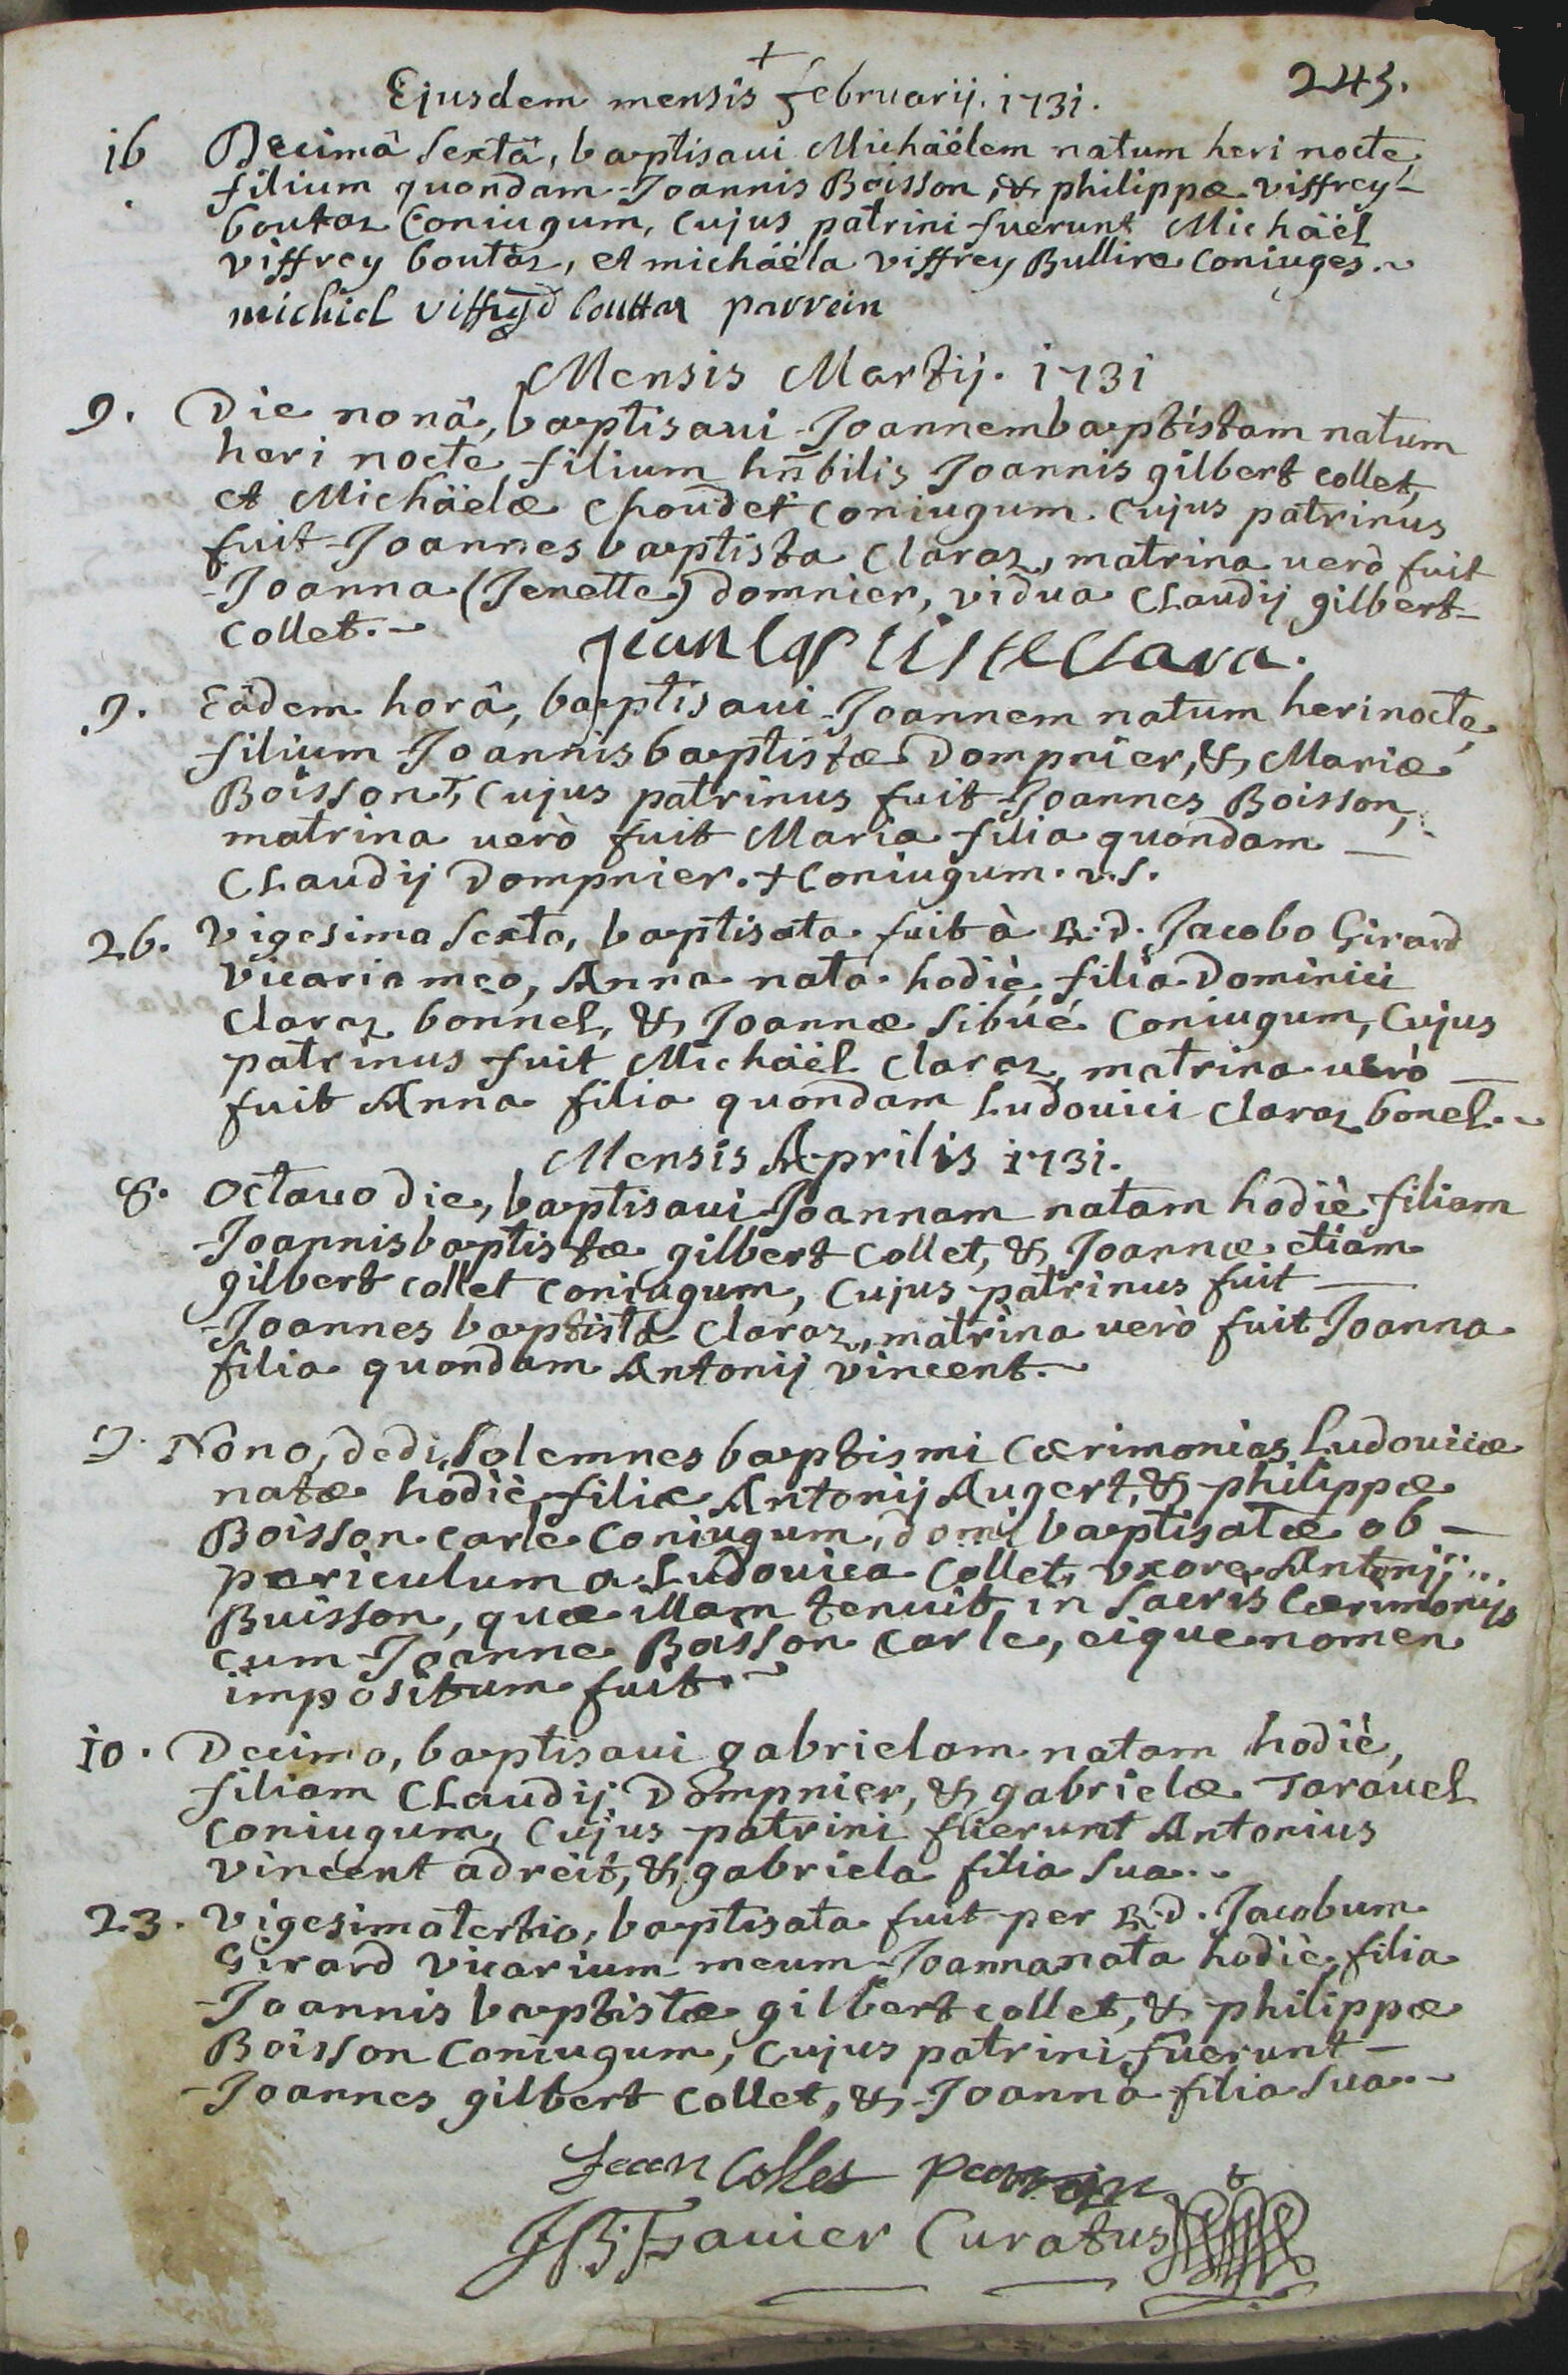 +
Ejusdem mensis februarij. 1731.
245.
16 Decimâ sextâ, baptisaui Michäëlem natum heri nocte,
filium quondam Joannis Boisson, & philippæ viffrey-
boutaz Coniugum, Cujus patrini fuerunt Michäël
viffrey boutaz, et michäëla viffrey Bullire Coniuges.~
michiel viffreyd bouttaz parrein
Mensis Martij. 1731
9. Die nonâ, baptisaui Joannembaptistam natum
heri nocte, filium hn̄bilis Joannis gilbert collet,
et Michäelæ choudet Coniugum. Cujus patrinus
fuit Joannes baptista Claraz, matrina uerò fuit
Joanna (Jenette) Domnier, vidua Claudij gilbert-
Collet.~
jean baptiste Clara.
9. Eâdem horâ, baptisaui Joannem natum heri nocte,
filium Joannisbaptistæ Dompnier, & Mariæ
Boisson+, Cujus patrinus fuit Joannes Boisson,
matrina uerò fuit Maria filia quondam —
Claudij Dompnier. + Coniugum. v.s.
26. Vigesima sexta, baptisata fuit à R.d. Jacobo Girard
vicario meo, Anna nata hodiè, filia Dominici
Claraz bonnel, & Joannæ Sibué Coniugum, Cujus
patrinus fuit Michäël Claraz, matrina uerò —
fuit Anna filia quondam Ludouici Claraz bonel.~
Mensis Aprilis 1731.
8. Octauo die, baptisaui Joannam natam hodiè, filiam
Joannisbaptistæ gilbert Collet, & Joannæ etiam
gilbert collet Coniugum, Cujus patrinus fuit —
Joannes baptista Claraz, matrina uerò fuit Joanna
filia quondam Antonij vincent.~
9. Nono, dedi, solemnes baptismi Cærimonias Ludouicæ
natæ hodiè, filiæ Antonij Augert, & philippæ
Boisson carle Coniugum, domi baptisatæ ob —
periculum a Ludouica Collet, vxore Antonij...
Buisson, quæ illam tenuit, in sacris Cærimonijs
cum Joanne Boisson Carle, eique nomen
impositum fuit.~
10. Decimo, baptisaui gabrielam natam hodiè,
filiam Claudij Dompnier, & gabrielæ Tarauel
Coniugum, Cujus patrini fuerunt Antonius
vincent adreit, & gabriela filia sua..
23. Vigesimatertio, baptisata fuit per R.d. Jacobum
Girard vicarium meum Joanna nata hodiè, filia
Joannis baptistæ gilbert collet, & philippæ
Boisson Coniugum, Cujus patrini fuerunt —
Joannes gilbert Collet, & Joanna filia sua.~
Jean Colles parrain
Curatus